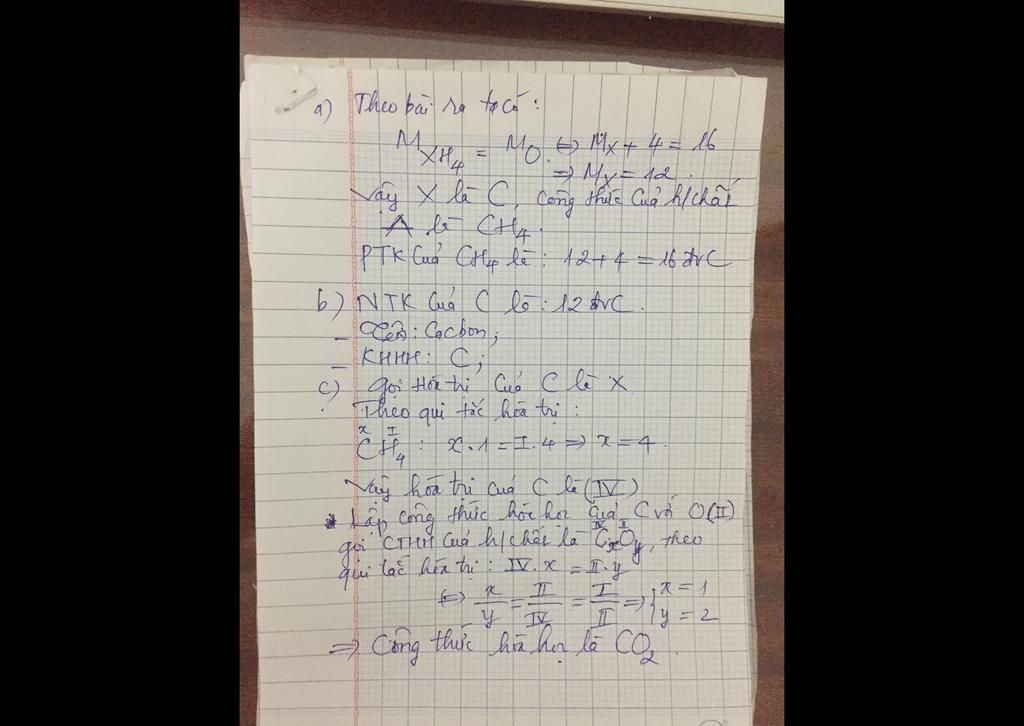 a) Theo bài ra ta có:
M XH₄ = M O. ⇔ Mx + 4 = 16
⇒ Mx = 12.
Vậy X là C, công thức của h/chất
A là CH₄.
PTK của CH₄ là: 12+4 = 16 đvC
b) NTK của C là: 12 đvC.
- Tên: Cacbon;
- KHHH: C;
c) Gọi hóa trị của C là x
Theo qui tắc hóa trị:
x I
CH₄ : x.1 = I.4 ⇒ x = 4.
Vậy hóa trị của C là (IV)
* Lập công thức hóa học của C và O(II)
IV I
gọi CTHH của h/chất là CxOy, theo
qui tắc hóa trị: IV.x = II.y
⇔ x/y = II/IV = I/II ⇒ { x = 1
y = 2
⇒ Công thức hóa học là CO₂.